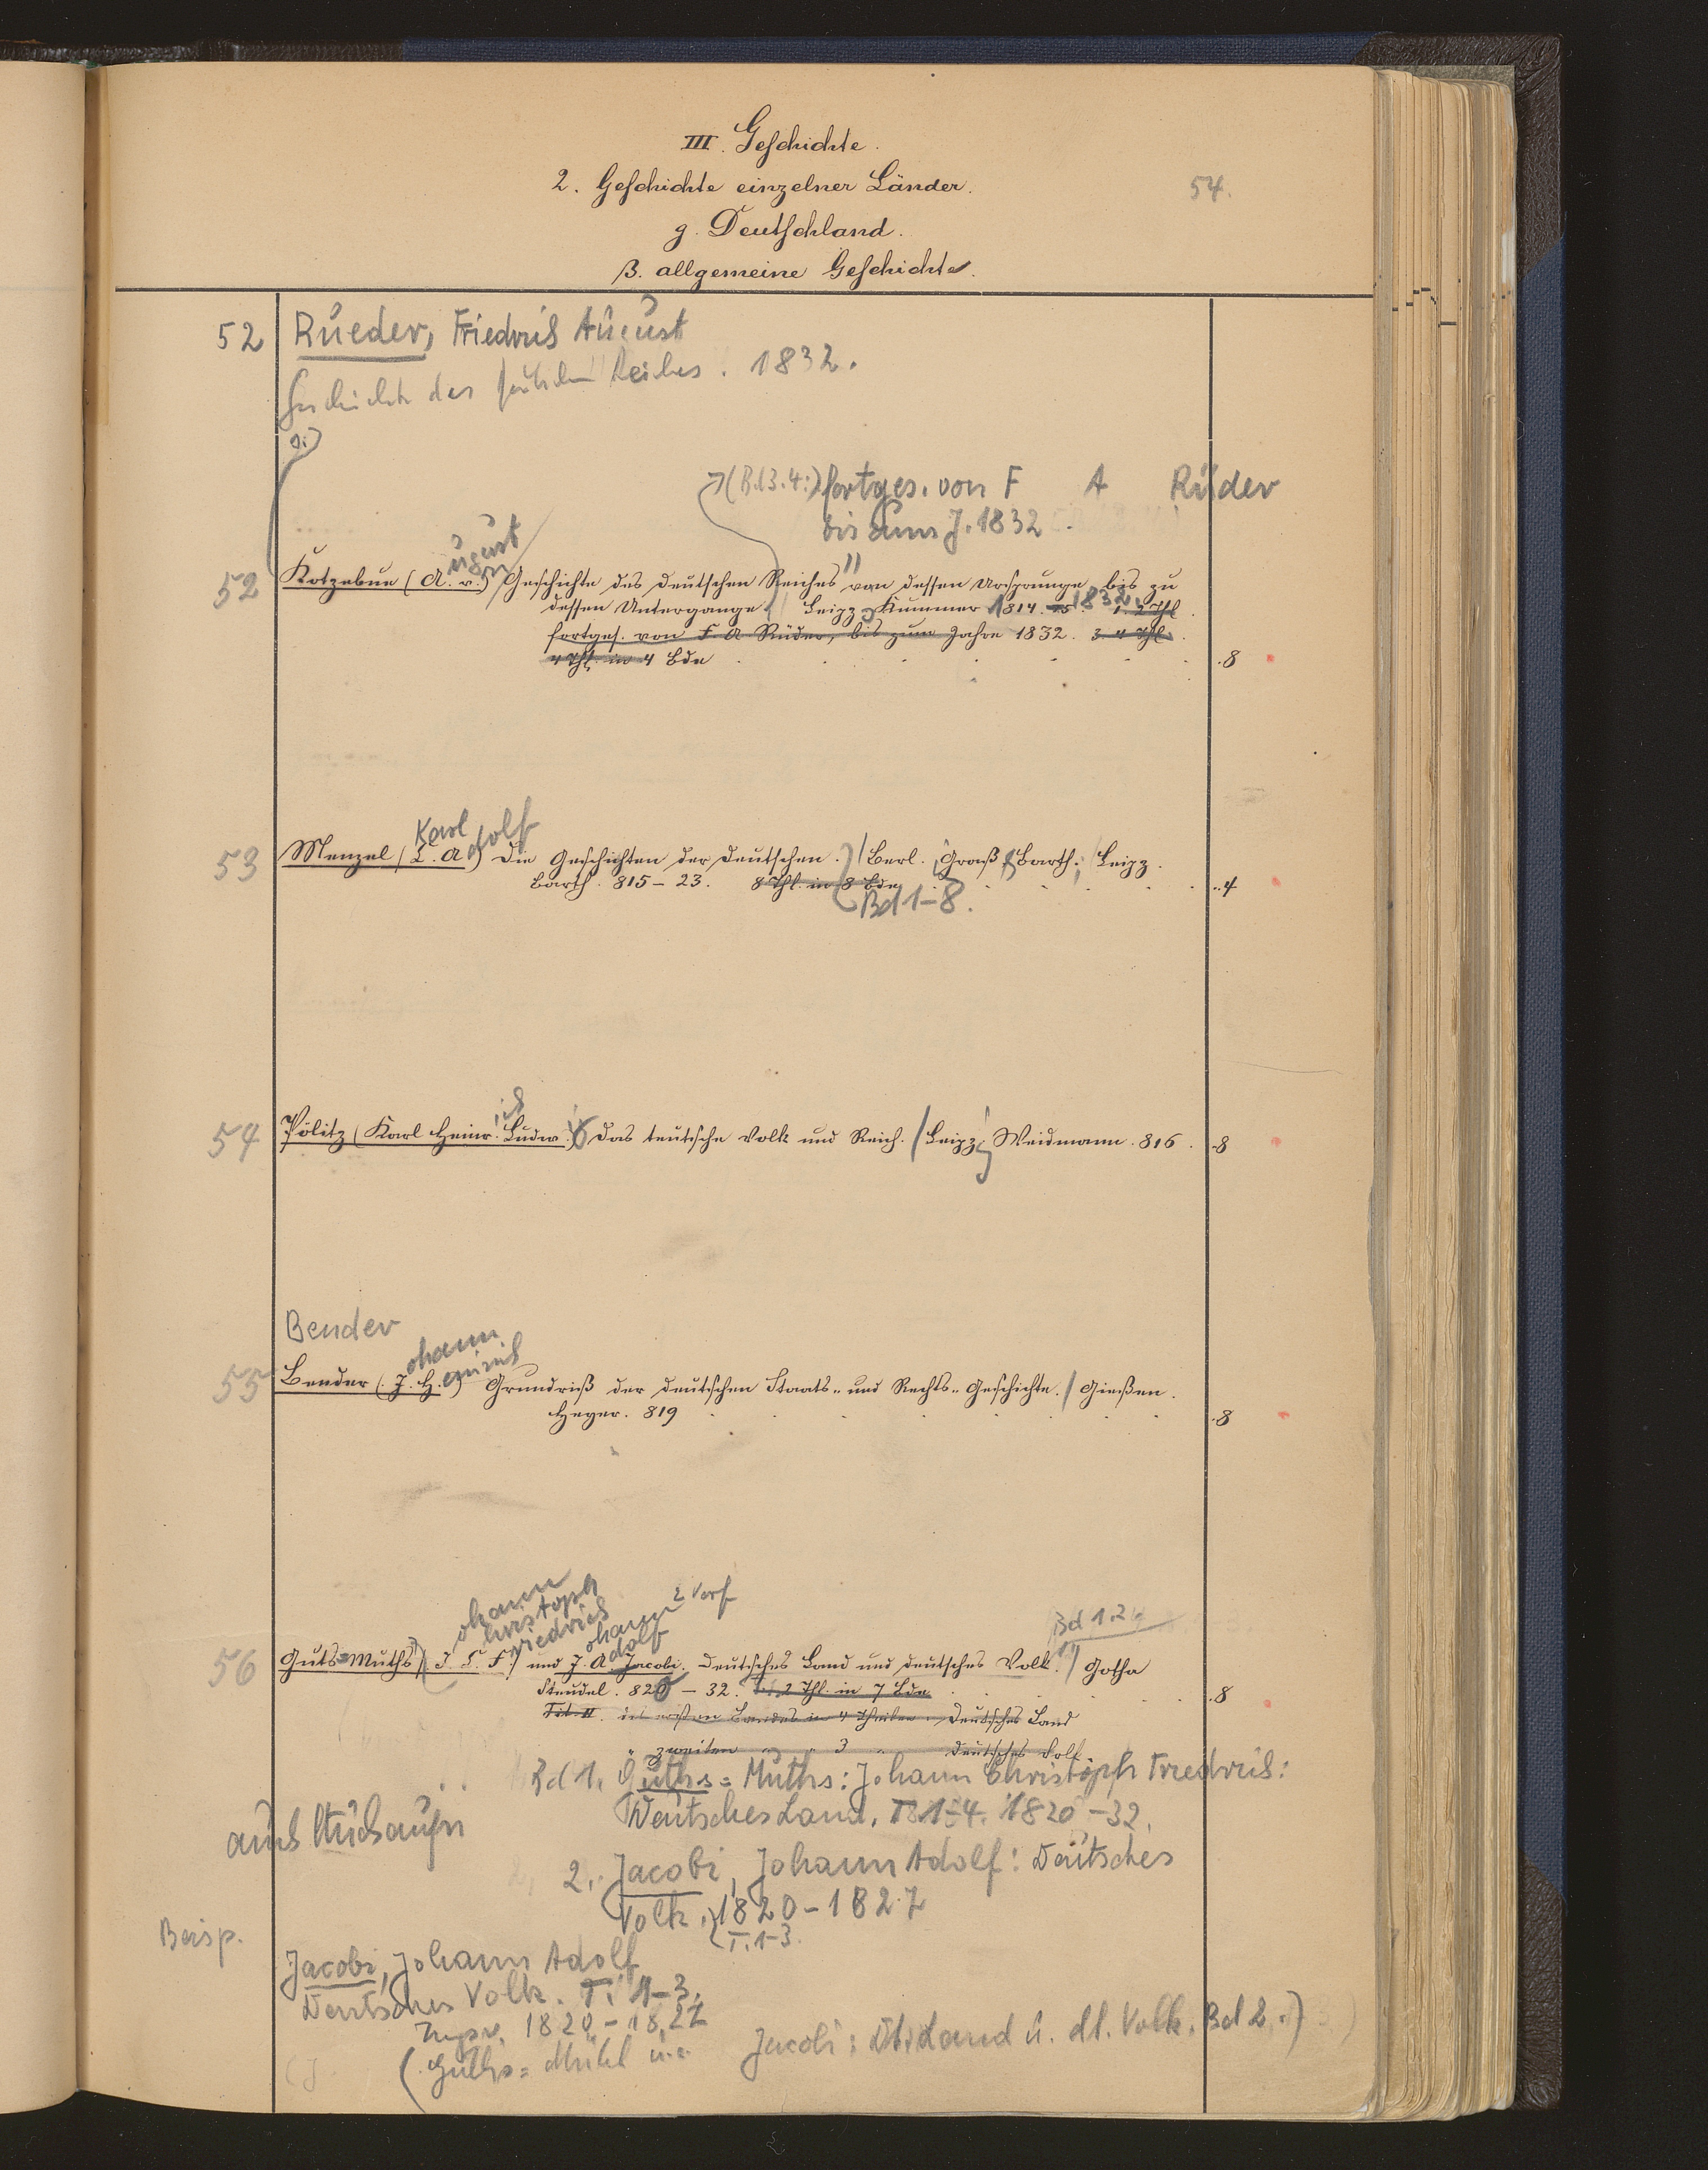 III. Geschichte.
2. Geschichte einzelner Länder.
54.
g. Deutschland.
β. allgemeine Geschichte.
52 Rüeder, Friedrich August
Geschichte des Reiches. 1832.
(Bd 3.4:) fortges. von F A Rüder
bis zum J. 1832
ugust
52 Kotzebue (A. v.) Geschichte des deutschen Reiches von dessen Ursprunge bis zu
dessen Untergange. Leipz. Kummer 1814-15. 1832. 1. 2 Thl.
fortges. von F. A. Rüder, bis zum Jahre 1832. 3. 4 Thl.
4 Thl. in 4 Bde .8
Karl dolf
53 Menzel (C. A.) Die Geschichten der Deutschen. Berl. Graß & Barth; Leipz.
Barth. 815-23. 8 Thl. in 8 Bde ..4
Bd 1-8.
ich
54 Pölitz (Karl Heinr. Ludw.) Das teutsche Volk und Reich. Leipz. Weidmann. 816. .8
Bender
ohann
einrich
55 Bender (J. H.) Grundriß der deutschen Staats- und Rechts-Geschichte. Gießen.
Heyer. 819 .8
ohann
hristoph 2 Verf
riedrich
ohann
dolf
Bd 1.2.
56 Guts=Muths (J. C. F.) und J. A. Jacobi. Deutsches Land und deutsches Volk. Gotha
Steudel. 820-32. 1. 2 Thl. in 7 Bde .8
Tit. II. des ersten Bandes in 4 Theilen: Deutsches Land
" zweiten " " 3 " Deutsches Volk.
Bd 1. Guths=Muths: Johann Christoph Friedrich:
Deutsches Land. T. 1-4. 1820-32.
auch
2. Jacobi, Johann Adolf: Deutsches
Volk. 1820-1827
T. 1-3.
Jacobi, Johann Adolf
Deutsches Volk. T. 1-3.
1820-1827
(Guths=
Jacobi: Dt. Land u. dt. Volk. Bd 2.)